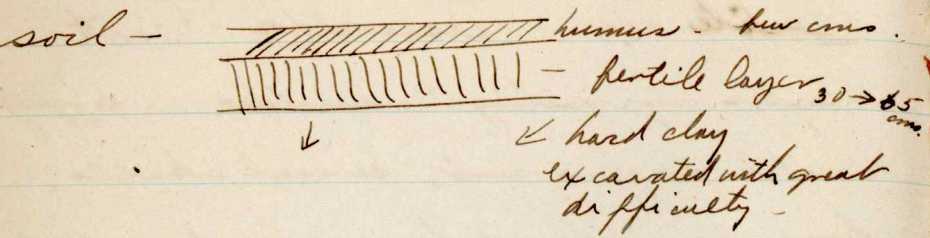 soil —
humus - few cms.
fertile layer 30 → 65 cms.
hard clay
excavated with great
difficulty -